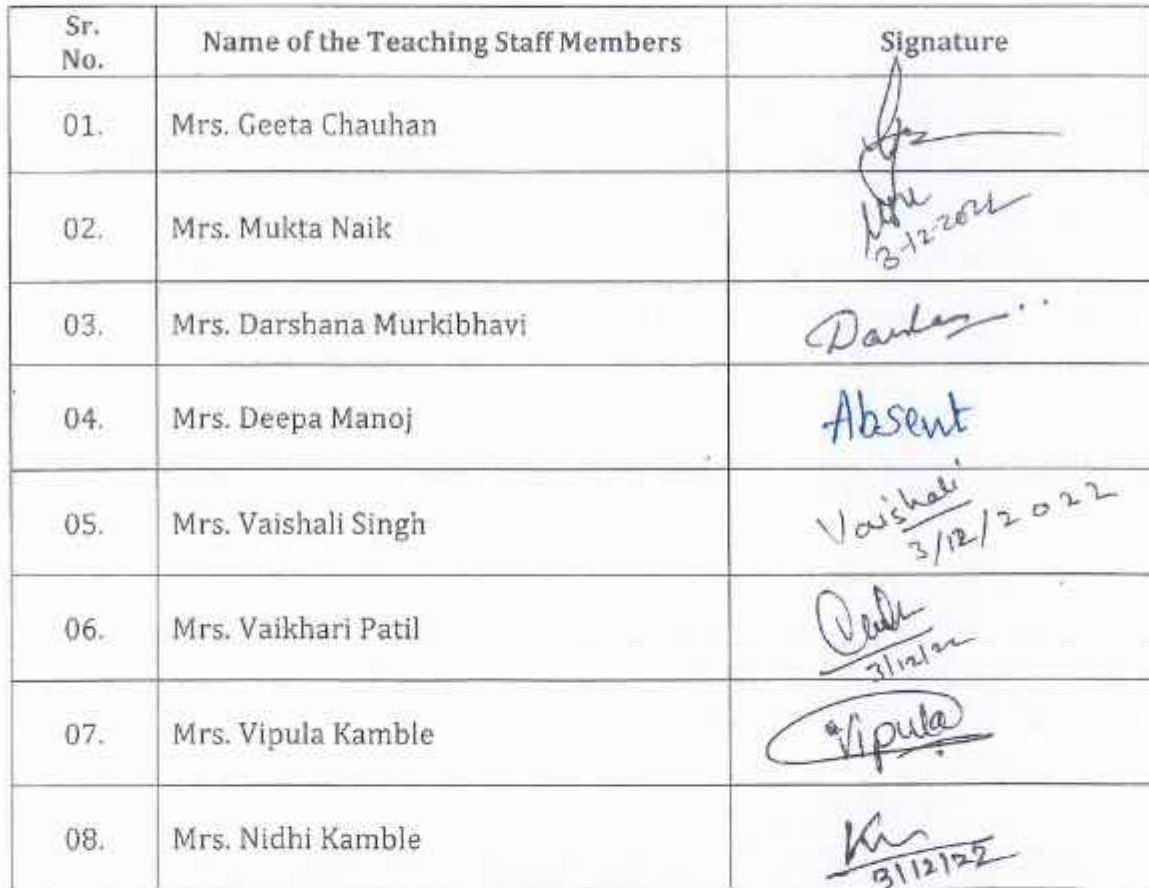 Sr. No. Name of the Teaching Staff Members Signature
01. Mrs. Geeta Chauhan
02. Mrs. Mukta Naik
3-12-2022
03. Mrs. Darshana Murkibhavi
04. Mrs. Deepa Manoj Absent
05. Mrs. Vaishali Singh Vaishali
3/12/2022
06. Mrs. Vaikhari Patil
3/12/22
07. Mrs. Vipula Kamble Vipula
08. Mrs. Nidhi Kamble
3/12/22